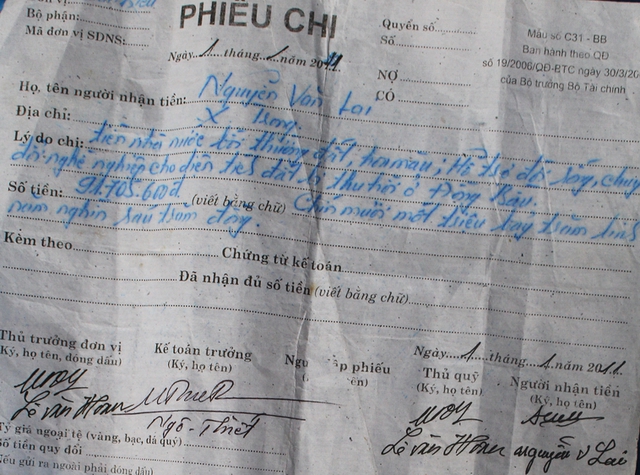 Bộ phận:
Mã đơn vị SDNS:
PHIẾU CHI
Ngày 1 tháng 1 năm 2011
Quyển số
Số
NỢ
CÓ
Mẫu số C31 - BB
Ban hành theo QĐ
số 19/2006/QĐ-BTC ngày 30/3/20
của Bộ trưởng Bộ Tài chính
Họ, tên người nhận tiền: Nguyễn Văn Lai
Địa chỉ:
Lý do chi: tiền nhà nước bồi thường đất, hoa màu; Hỗ trợ đời sống, chuyển
đổi nghề nghiệp cho diện tích đất bị thu hồi ở Đồng Sau.
Số tiền: 91.705.600đ (viết bằng chữ) Chín mươi một triệu bảy trăm linh
năm nghìn sáu trăm đồng.
Kèm theo Chứng từ kế toán
Đã nhận đủ số tiền (viết bằng chữ)
Ngày 1 tháng 1 năm 2011
Thủ trưởng đơn vị
(Ký, họ tên, đóng dấu)
Kế toán trưởng
(Ký, họ tên)
lập phiếu
Thủ quỹ
(Ký, họ tên)
Người nhận tiền
(Ký, họ tên)
Lê Văn Hoan
Ngô - Thiết
Lê Văn Hoan
Nguyễn V Lai
Tỷ giá ngoại tệ (vàng, bạc, đá quý)
Số tiền quy đổi
(Nếu gửi ra ngoài phải đóng dấu)